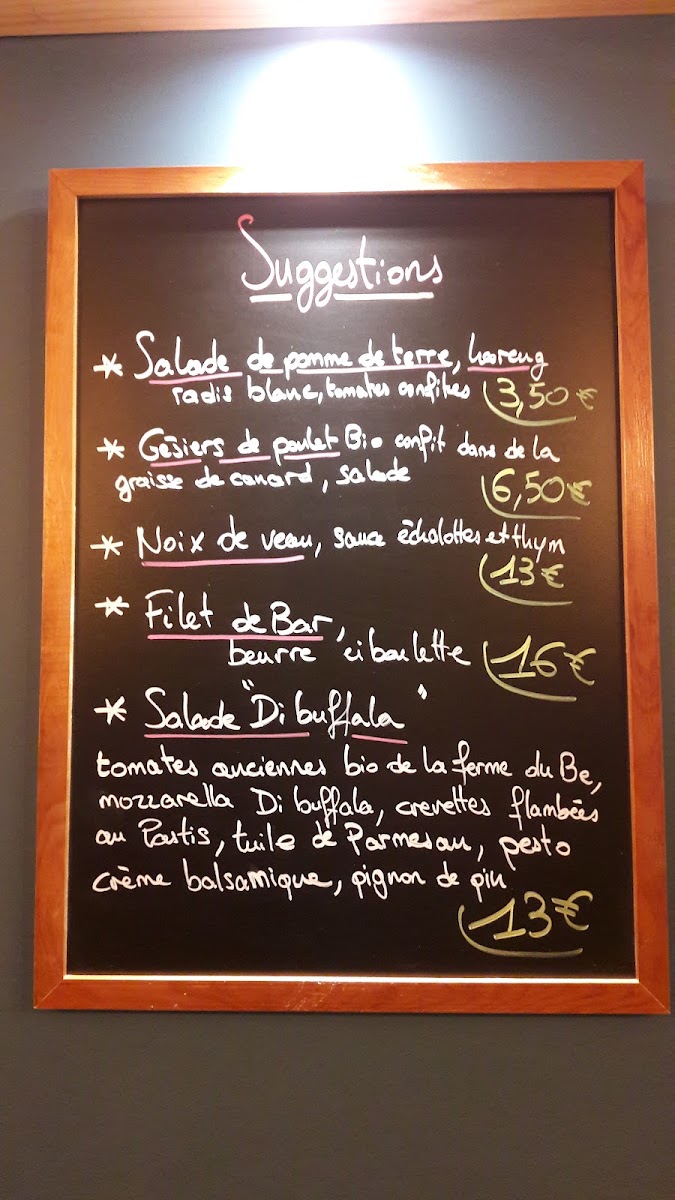 Suggestions
* Salade de pomme de terre, hareng
radis blanc, tomates confites 3,50€
* Gésiers de poulet Bio confit dans de la
graisse de canard, salade
6,50€
* Noix de veau, sauce échalottes et thym
13€
* Filet de Bar,
beurre ciboulette 16€
* Salade "Di buffala"
tomates anciennes bio de la ferme du Be,
mozzarella Di buffala, crevettes flambées
au Pastis, tuile de Parmesan, pesto
crème balsamique, pignon de pin
13€